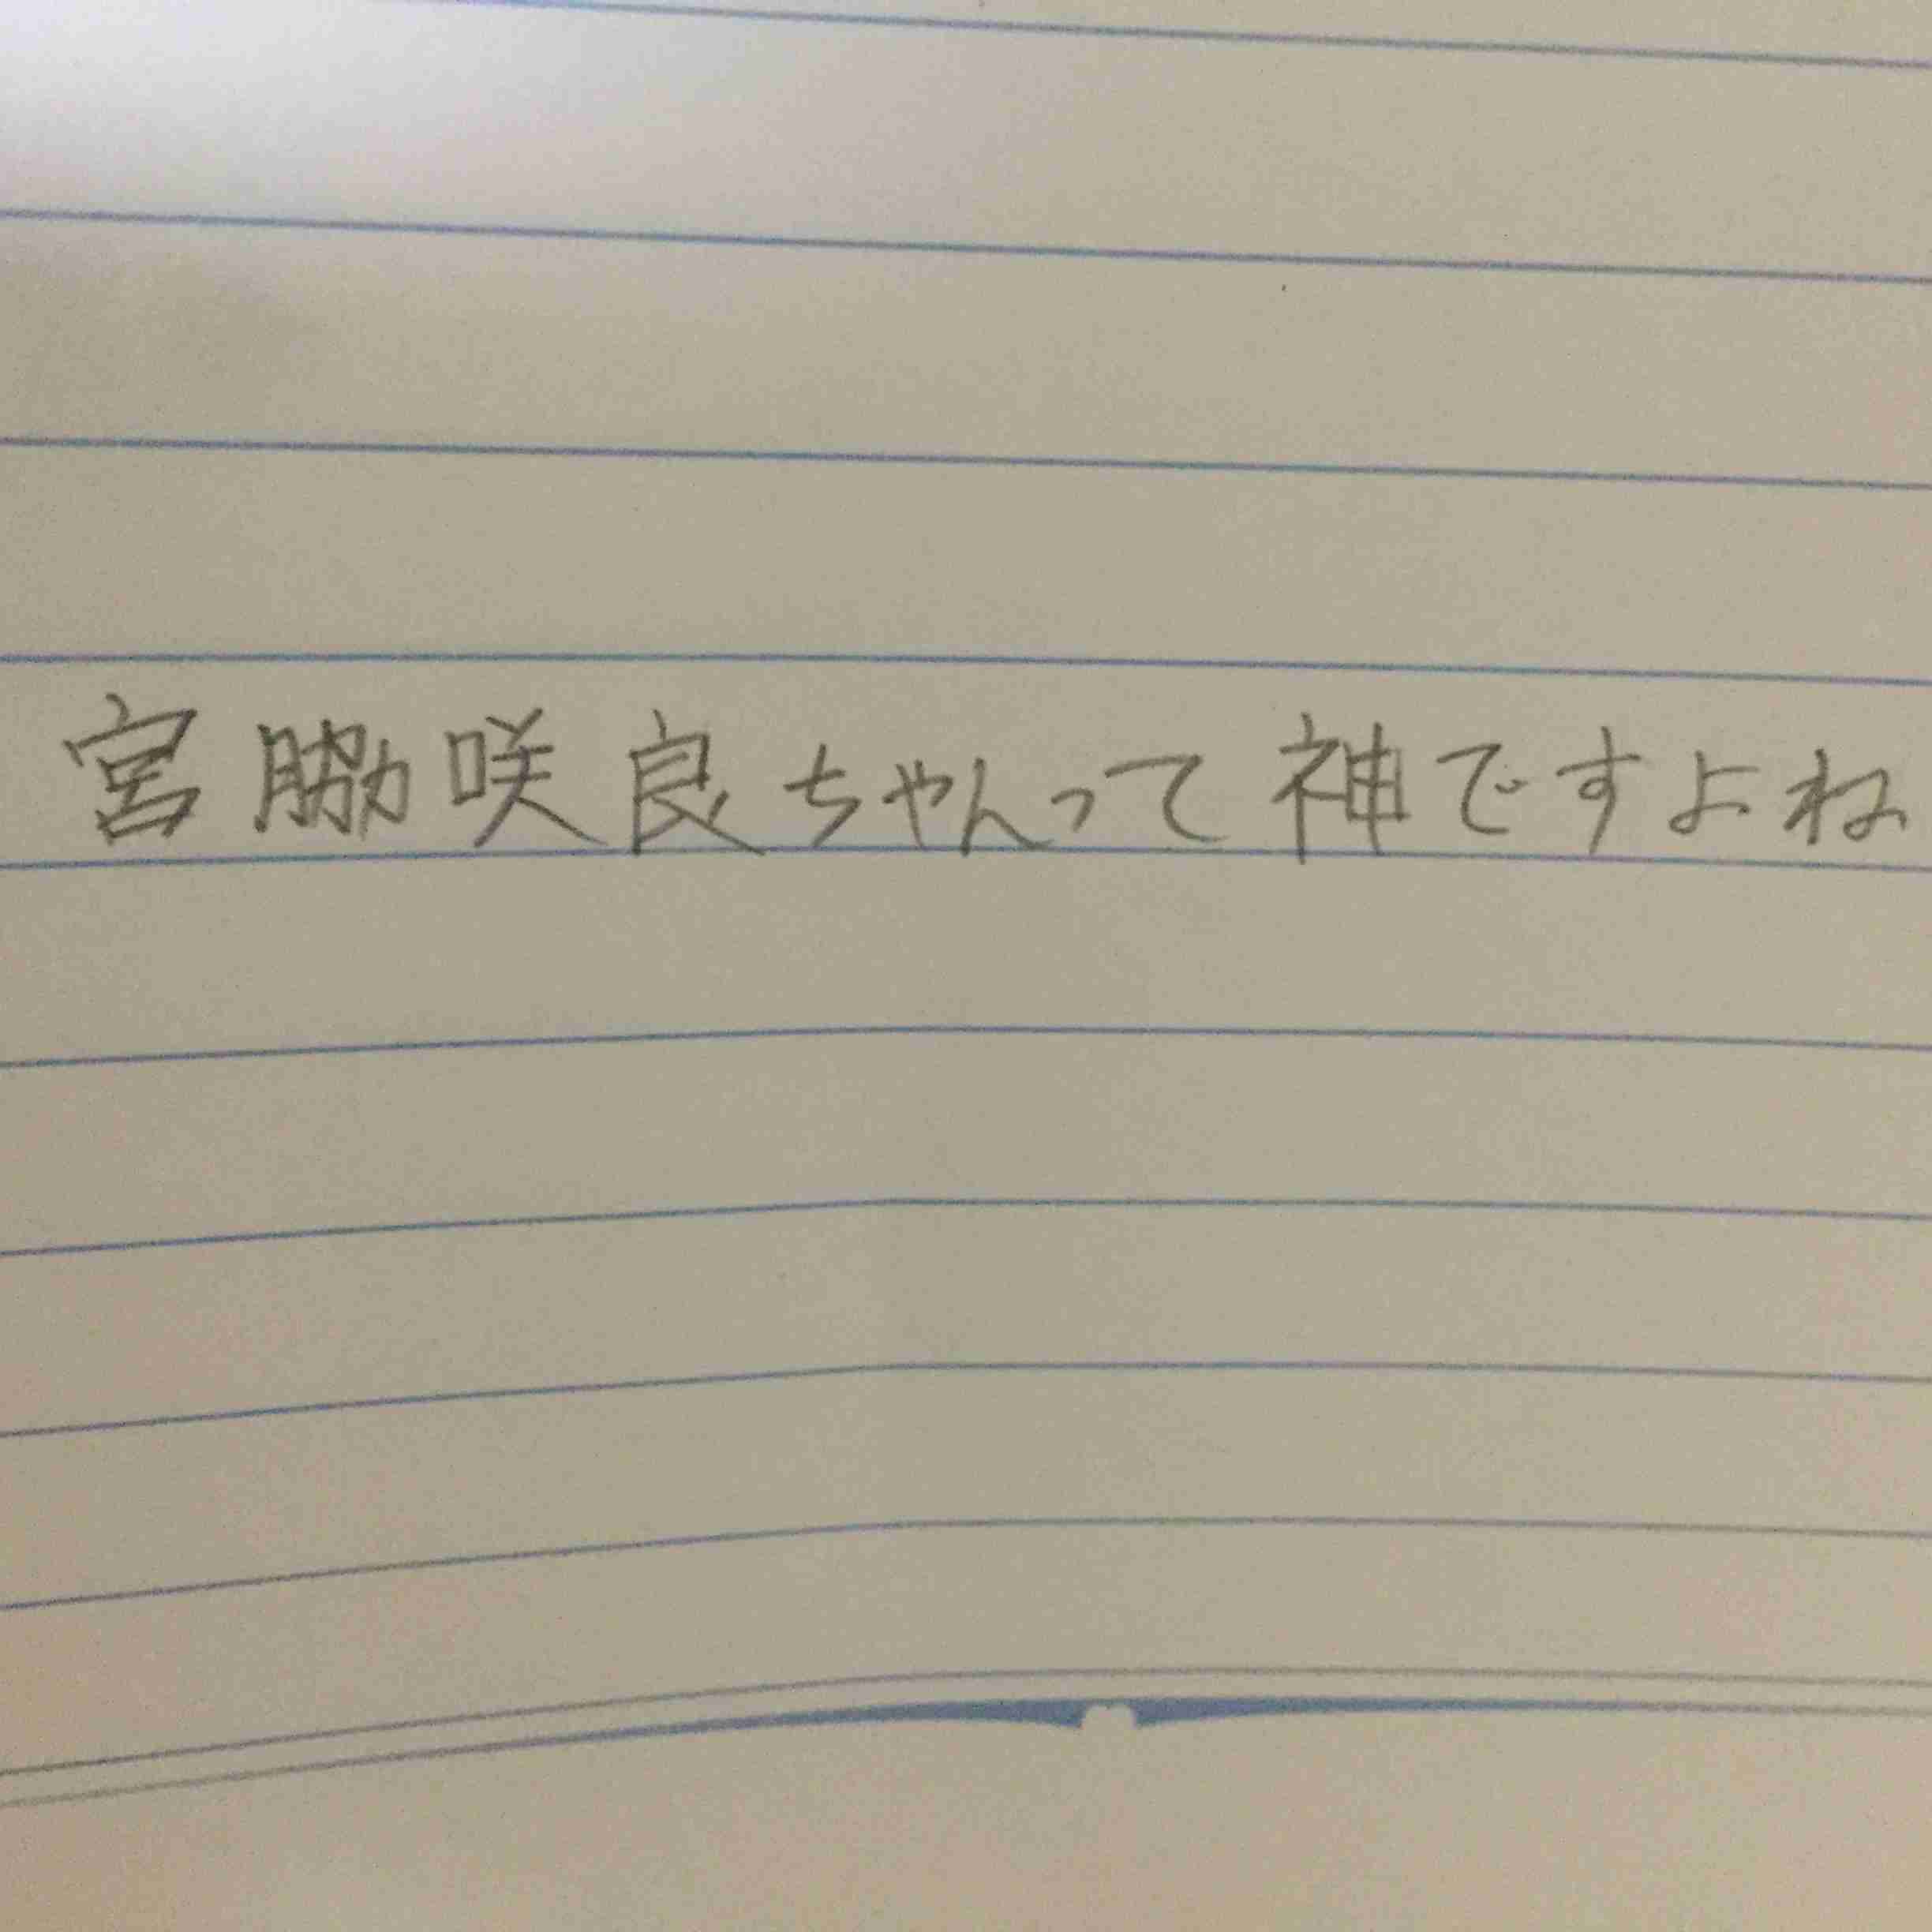 宮脇咲良ちゃんって神ですよね